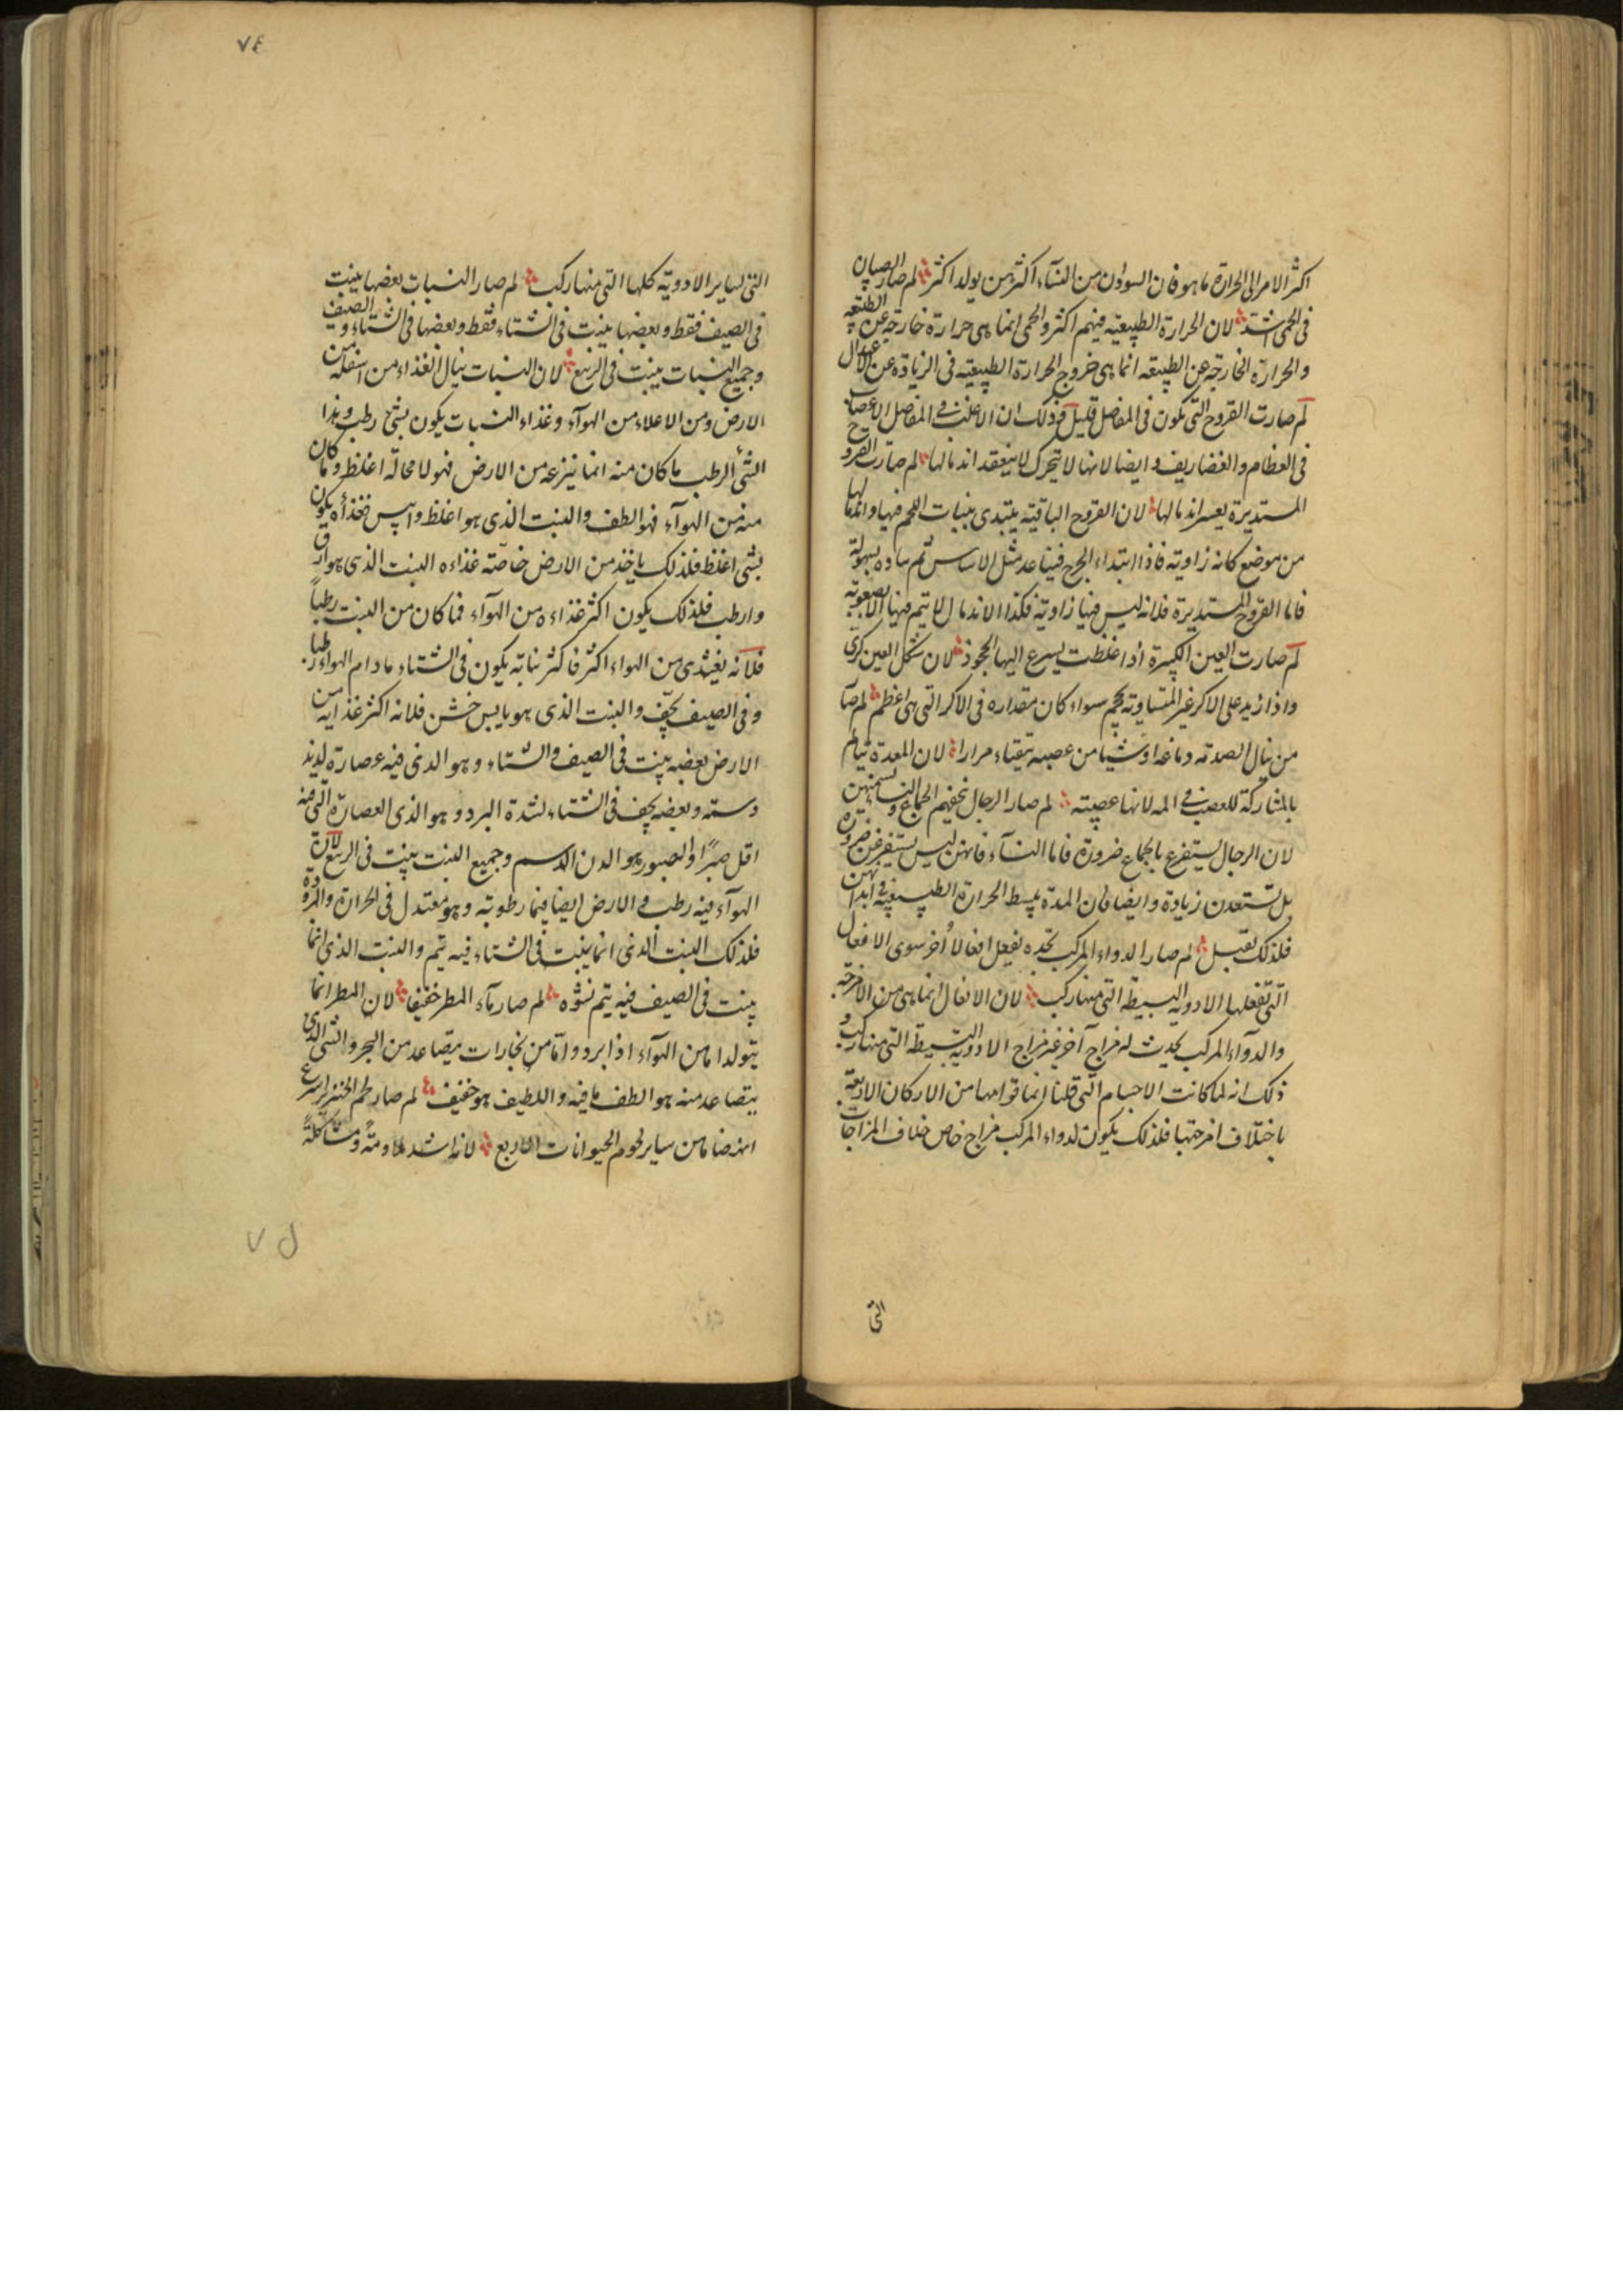 اكثر الامر الى الحرارة ما هو فان السودان من النساء اكثر من يولد اكثر لم صار الصبيان
فى الحمى اشد لان الحرارة الطبيعية فيهم اكثر والحمى انما هى حرارة خارجة عن الطبيعه
والحرارة الخارجة عن الطبيعه انما هى خروج الحرارة الطبيعية فى الزيادة عن الاعتدال
لم صارت القروح التى تكون فى المفاصل قليل وذلك ان الاغلب فى المفاصل الاعصاب
فى العظام والغضاريف و ايضا لانها لا تتحرك لا ينعقد اندمالها لم صارت القروح
المستديرة يعسر اندمالها لان القروح الباقية يبتدى بنبات اللحم فيها واندمالها
من موضع كانه زاوية فاذا ابتداء الجرح فيتاعد مثل الاساس ثم ساده بسهولة
فاما القروح المستديرة فلانه ليس فيها زاوية فكذا الاندمال لا يتم فيها الا بصعوبة
لم صارت العين الكبيرة اذا غلظت يسرع اليها الجحوذ لان شكل العين كرى
واذا ازيد على الاكر غير المتساوية حجم سواء كان مقداره فى الاكر التى هى اعظم لم صار
من ينال الصدمة دماغه او شيئا من عصبه يتقياء مرارا لان المعدة تيالم
بالمشاركة للعصب فى المه لانها عصبية لم صار الرجال نحفهم الجماع والنساء تسمنهن
لان الرجال يستفرغ بالجماع ضرورة فاما النساء فانهن ليس يستفرغن ضرورة
بل تستعدن زيادة وايضا فان المدة يبسط الحرارة الطبيعية فى ابدانهن
فلذلك تقبل لم صار الدواء المركب تجده يفعل افعالا أخر سوى الافعال
التى تفعلها الادوية البسيطة التى منها ركب لان الافعال انما هى من الامزجة
والدوآء المركب يحدث له مزاج آخر غير مزاج الادوية البسيطة التى منها ركب و
ذلك انه لما كانت الاجسام التى قلنا انما قوامها من الاركان الاربعة
باختلاف امزجتها فلذلك يكون لدواء المركب مزاج خاص خلاف المزاجات
التى
٧٤
التى لساير الادوية كلها التى منها ركب لم صار النبات بعضها ينبت
فى الصيف فقط وبعضها ينبت فى الشتاء فقط وبعضها فى الشتاء و الصيف
وجميع النبات ينبت فى الربيع لان النبات ينال الغذاء من اسفله من
الارض ومن الاعلاء من الهوآء وغذاء النبات يكون بشى رطب وهذا
الشئ الرطب ما كان منه انما ينزعه من الارض فهو لا محالة اغلظ وما كان
منه من الهوآء فهو الطف والنبت الذى هو اغلظ وايبس فغذاؤه يكون
بشى اغلظ فلذلك ياخذ من الارض خاصة غذاءه النبت الذى هو ارق
وارطب فلذلك يكون اكثر غذاءه من الهوآء فما كان من النبت رطبا
فلانه يغتذى من الهواء اكثر فاكثر نباته يكون فى الشتاء مادام الهواء رطبا
وفى الصيف يجف والنبت الذى هو يابس خشن فلانه اكثر غذايه من
الارض بعضه ينبت فى الصيف والشتاء وهو الذى فيه عصارة لدنه
دسمة وبعضه يجف فى الشتاء لشدة البرد وهو الذى العصارة التى فيه
اقل صبرًا والصبور هو الدن الدسم وجميع النبت ينبت فى الربيع لان
الهوآء فيه رطب و الارض ايضا فيها رطوبة وهو معتدل فى الحرارة والبرودة
فلذلك النبت الذى انما ينبت فى الشتاء فيه يتم والنبت الذى انما
ينبت فى الصيف فيه يتم نشؤه لم صار ماء المطر خفيفا لان المطر انما
يتولد اما من الهوآء اذا برد واما من بخارات يتصاعد من البحر والشى الذى
يتصاعد منه هو الطف ما فيه واللطيف هو خفيف لم صار لحم الخنزير اسرع
انهضاما من ساير لحوم الحيوانات الاربع لانه اشد ملاومةً ومشاكلةً